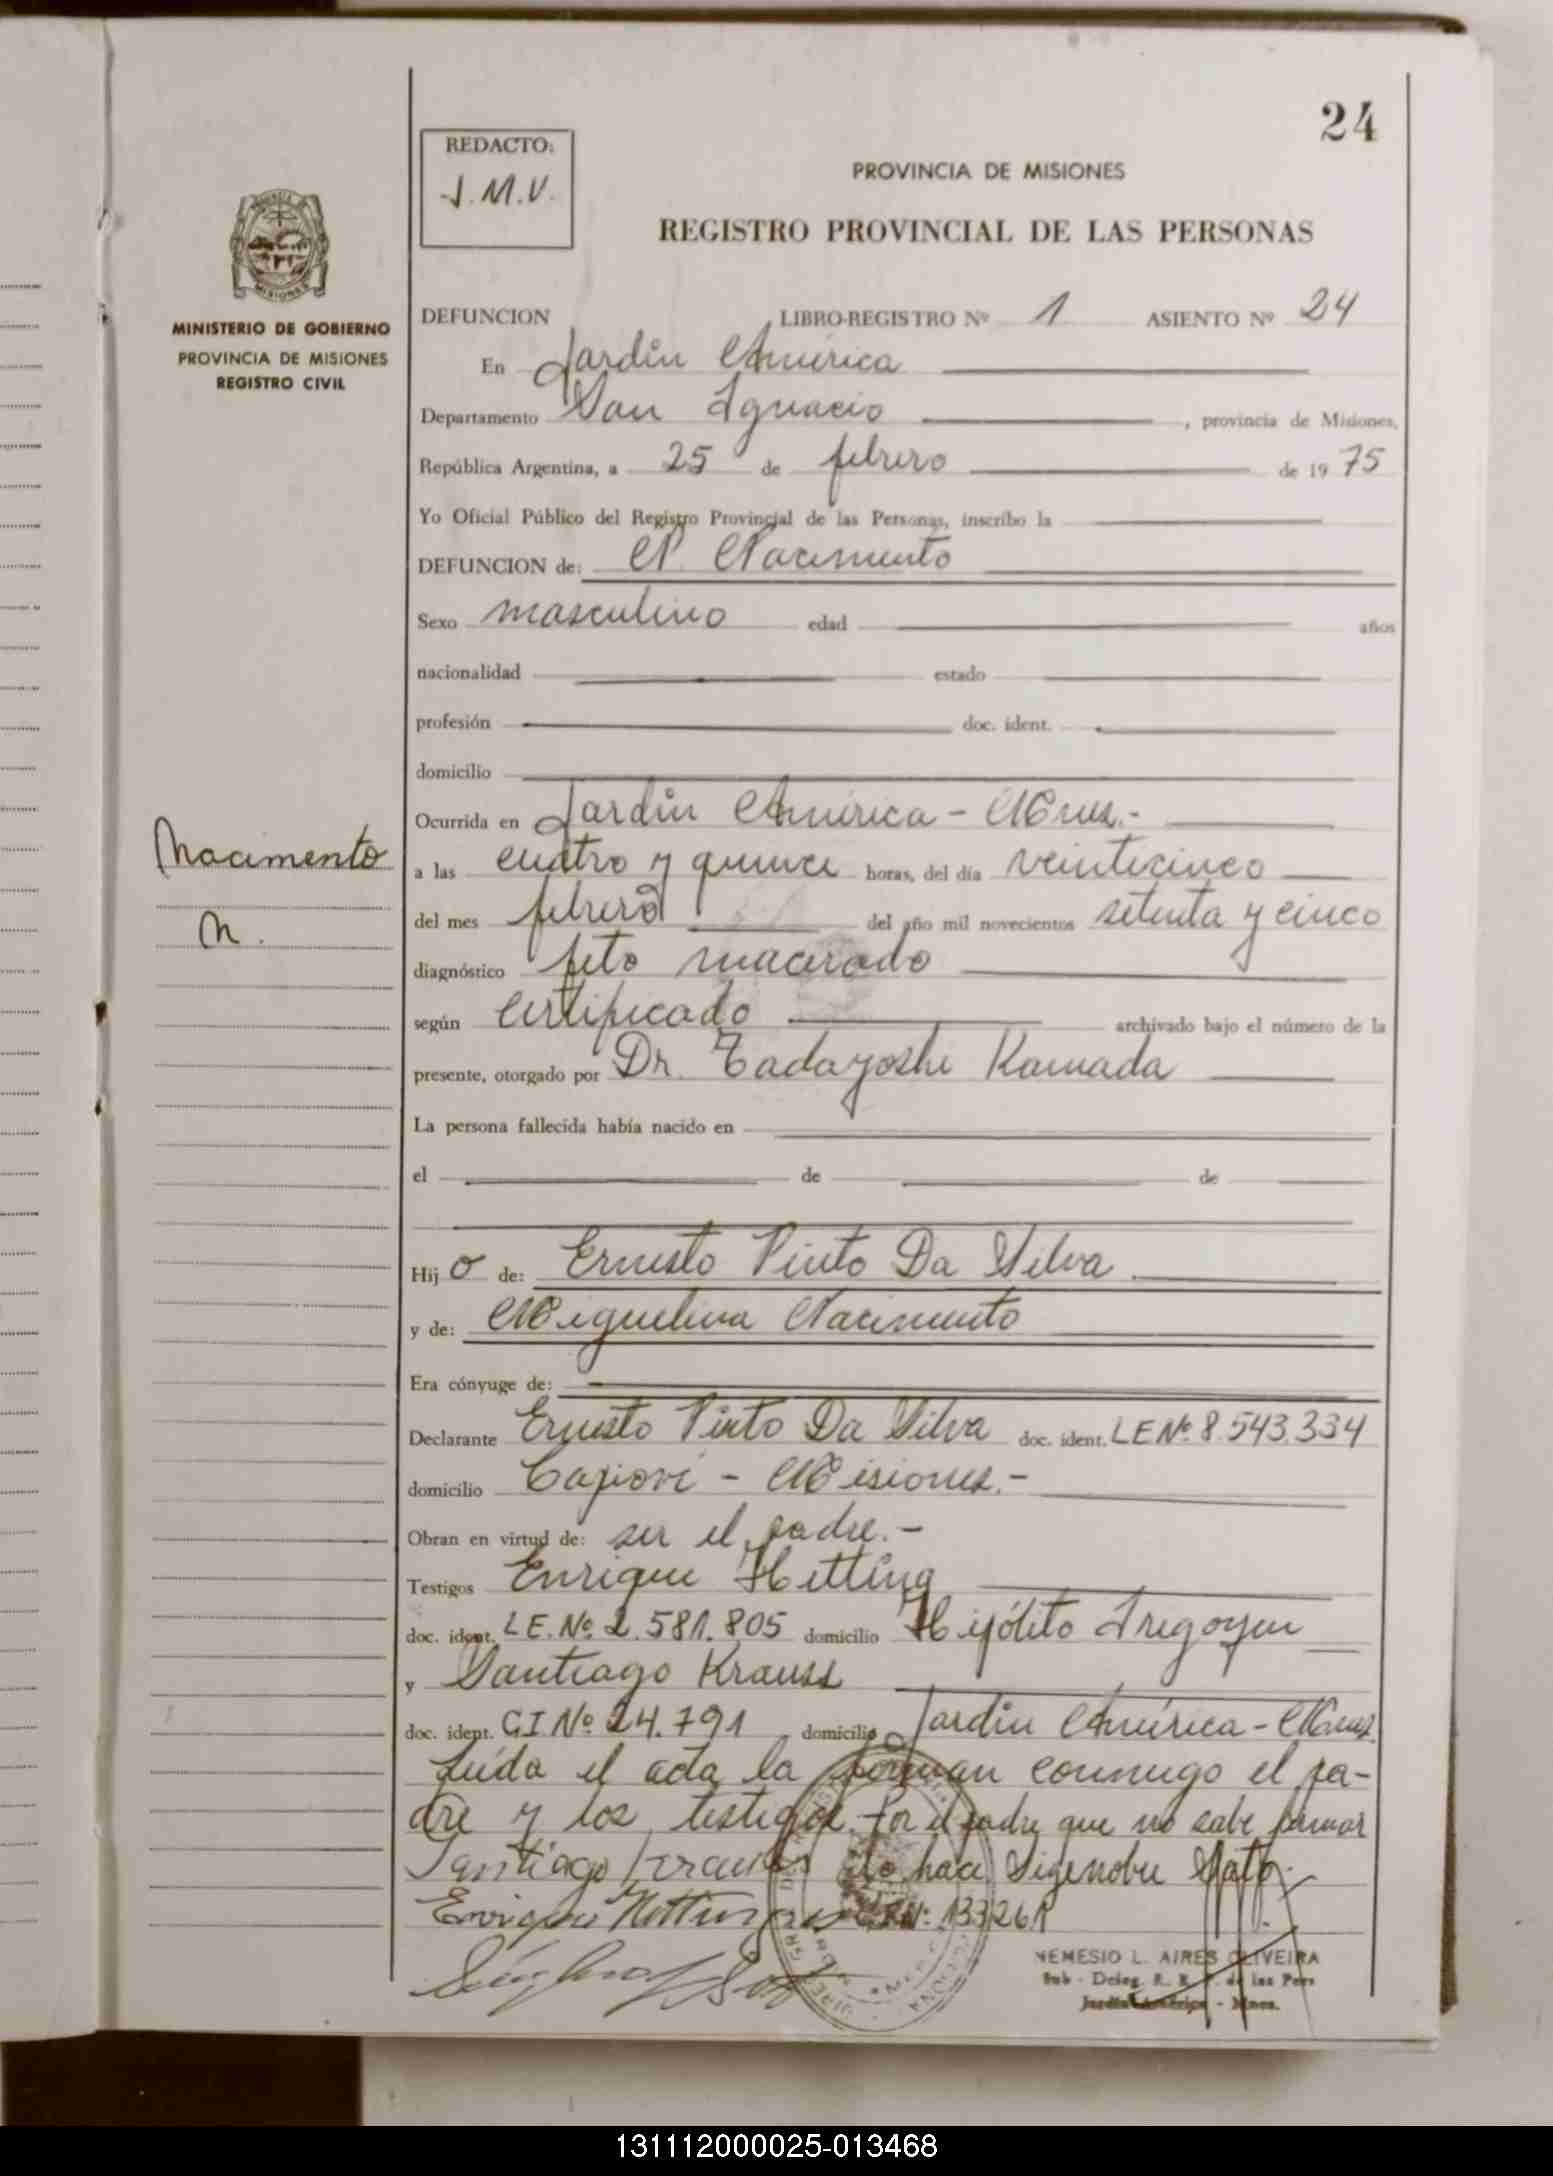 24
REDACTO:
J.M.V.
PROVINCIA DE MISIONES
REGISTRO PROVINCIAL DE LAS PERSONAS
MISIONES
MINISTERIO DE GOBIERNO
PROVINCIA DE MISIONES
REGISTRO CIVIL
DEFUNCION LIBRO-REGISTRO Nº 1 ASIENTO Nº 24
En Jardín América
Departamento San Ignacio, provincia de Misiones,
República Argentina, a 25 de febrero de 1975
Yo Oficial Público del Registro Provincial de las Personas, inscribo la
DEFUNCION de: N. Nacimento
Sexo masculino edad años
nacionalidad estado
profesión doc. ident.
domicilio
Ocurrida en Jardín América - Mnes.-
Nacimento
N.
a las cuatro y quince horas, del día veinticinco
del mes febrero del año mil novecientos setenta y cinco
diagnóstico feto macerado
según certificado archivado bajo el número de la
presente, otorgado por Dr. Tadayoshi Kamada
La persona fallecida había nacido en
el de de
Hijo de: Ernesto Pinto Da Silva
y de: Miguelina Nacimento
Era cónyuge de:
Declarante Ernesto Pinto Da Silva doc. ident. LE Nº 8.543.334
domicilio Capioví - Misiones.-
Obran en virtud de: ser el padre.-
Testigos Enrique Hetting
doc. ident. L.E. Nº 2.581.805 domicilio Hipólito Irigoyen
y Santiago Krauss
doc. ident. C.I. Nº 24.791 domicilio Jardín América - Mnes.
Leída el acta la firman conmigo el pa-
dre y los testigos. Por el padre que no sabe firmar
Santiago Krauss lo hace Sigenobu Sato.
Enrique Hetting Nº: 133261
NEMESIO L. AIRES OLIVEIRA
Sub - Deleg. R. P. de las Pers
Jardín América - Mnes.
131112000025-013468